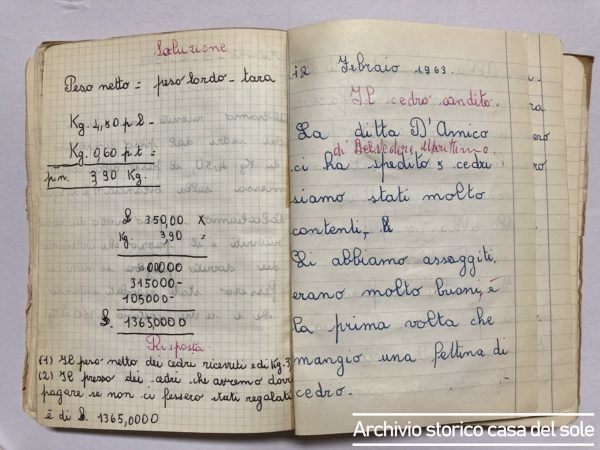 Soluzione
Peso netto = peso lordo - tara
Kg. 4,50 p.l -
Kg. 0,60 p.t =
p.n. 3,90 Kg.
£ 350,00 X
Kg. 390 =
00000
315000-
105000-
£. 1365,0000
Risposta
(1) Il peso netto dei cedri ricevuti è di Kg. 3,
(2) Il presso dei cedri che avremo
pagare se non ci fossero stati regalati
è di £. 1365,0000
12 Febraio 1963.
Il cedro candito.
La ditta D'Amico
di Belvedere Marittimo.
ci ha spedito 5 cedri
siamo stati molto
contenti,
Li abbiamo assaggiti.
erano molto buoni, è
la prima volta che
mangio una fettina di
cedro.
Archivio storico casa del sole